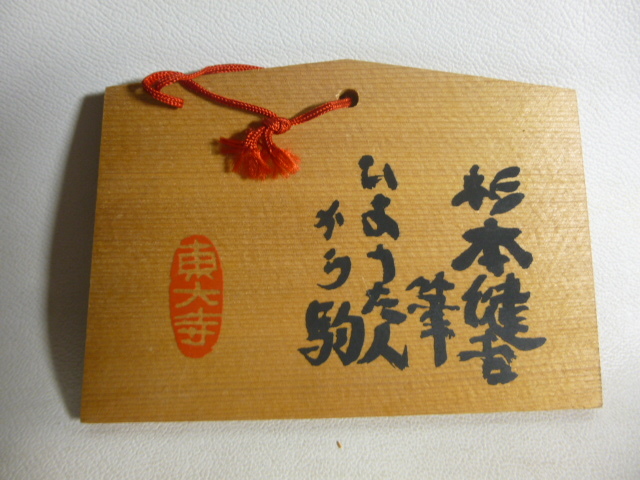 杉本健吉
筆
ひようたん
から
駒
東大寺